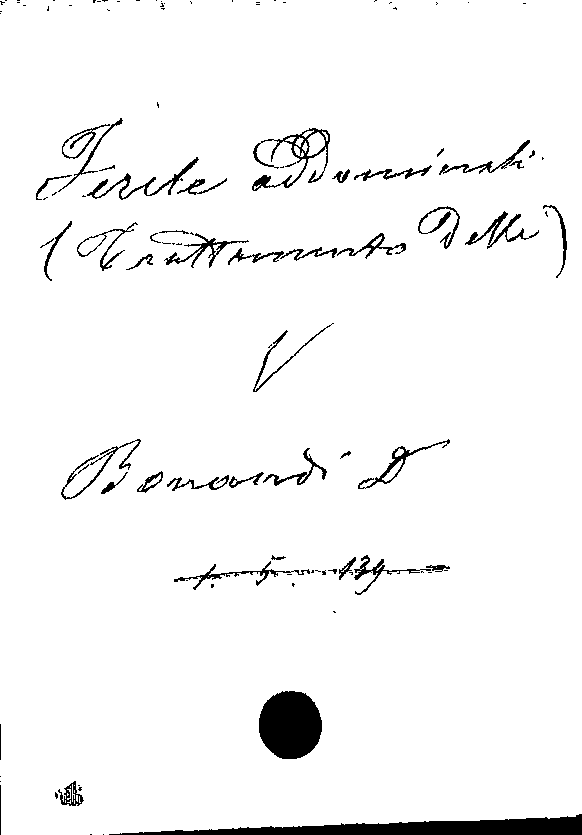 Ferite addominali
(Trattamento delle)
V
Bonardi D
1. 5. 139